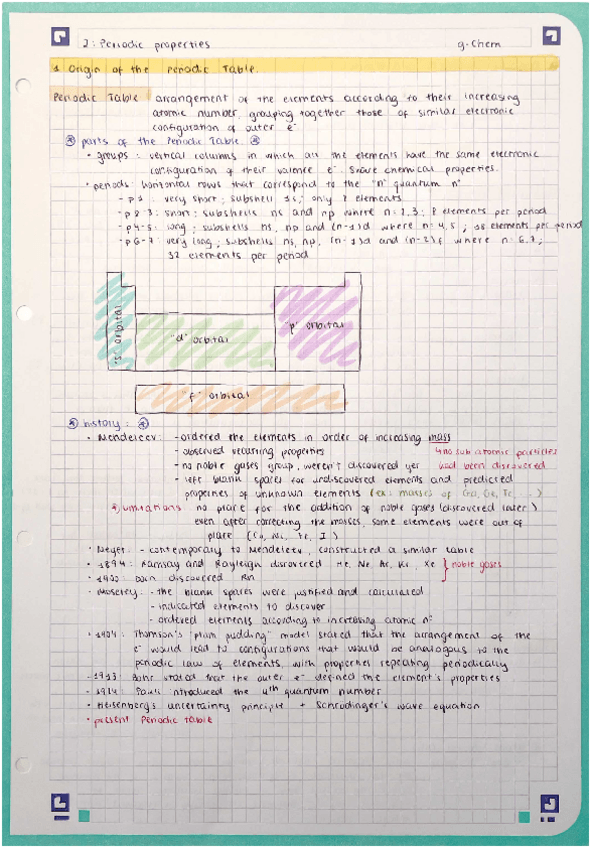 2: Periodic properties g-Chem
1 Origin of the Periodic Table.
Periodic Table arrangement of the elements according to their increasing
atomic number, grouping together those of similar electronic
configuration of outer e⁻
parts of the Periodic Table
• groups: vertical columns in which all the elements have the same electronic
configuration of their valence e⁻. Share chemical properties.
• periods: horizontal rows that correspond to the "n" quantum nº
- p 1: very short; subshell 1s; only 2 elements
- p 2-3: short; subshells ns and np where n=2,3; 8 elements per period
- p4-5: long; subshells ns, np and (n-1)d where n=4,5; 18 elements per period
- p6-7: very long; subshells ns, np, (n-1)d and (n-2)f where n=6,7;
32 elements per period
"s" orbital
"d" orbital
"p" orbital
"f" orbital
history:
• Mendeleev: - ordered the elements in order of increasing mass
- observed recurring properties ↳ no sub atomic particles
- no noble gases group, weren't discovered yet had been discovered
- left blank spaces for undiscovered elements and predicted
properties of unknown elements (ex: masses of Ga, Ge, Tc, ...)
limitations no place for the addition of noble gases (discovered later)
even after correcting the masses, some elements were out of
place (Co, Ni, Te, I)
• Meyer: - contemporary to Mendeleev, constructed a similar table
• 1894: Ramsay and Rayleigh discovered He, Ne, Ar, Kr, Xe } noble gases
• 1900: Dorn discovered Rn
• Moseley: - the blank spaces were justified and calculated
- indicated elements to discover
- ordered elements according to increasing atomic nº
• 1904: Thomson's "plum pudding" model stated that the arrangement of the
e⁻ would lead to configurations that would be analogous to the
periodic law of elements, with properties repeating periodically
• 1913: Bohr stated that the outer e⁻ defined the element's properties
• Pauli introduced the 4th quantum number
• Heisenberg's uncertainty principle + Schrödinger's wave equation
• present Periodic Table